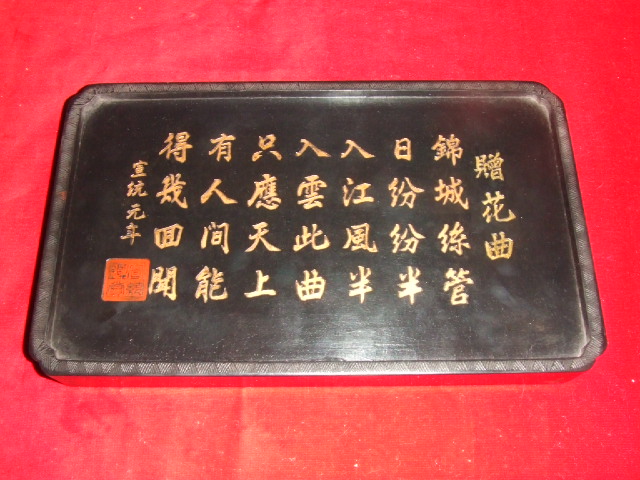 贈花曲
錦城絲管
日紛紛半
入江風半
入雲此曲
只應天上
有人間能
得幾回聞
宣統元年